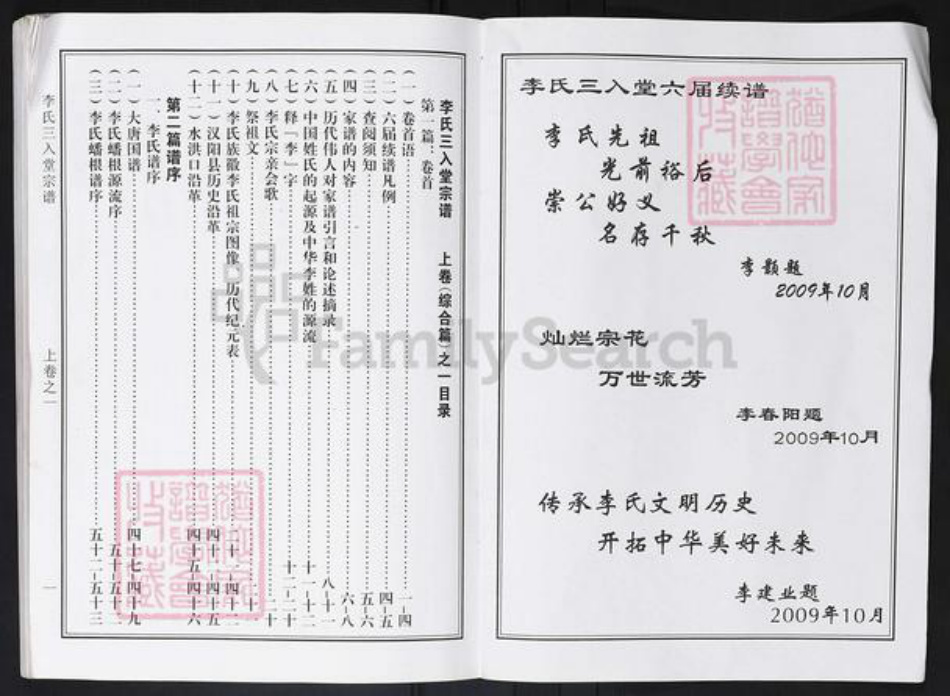 李氏三入堂六届续谱
李氏先祖
光前裕后
崇公好义
名存千秋
李颢题
2009年10月
灿烂宗花
万世流芳
李春阳题
2009年10月
传承李氏文明历史
开拓中华美好未来
李建业题
2009年10月
李氏三入堂宗谱 上卷(综合篇)之一目录
第一篇:卷首
(一)卷首语 一-四
(二)六届续谱凡例 四-五
(三)查阅须知 五-六
(四)家谱的内容 六-八
(五)历代伟人对家谱引言和论述摘录 八-十一
(六)中国姓氏的起源及中华李姓的源流 十一-十二
(七)释「李」字 十二-二十
(八)李氏宗亲会歌 二十
(九)祭祖文
(十)李氏族徽李氏祖宗图像、历代纪元表
(十一)汉阳县历史沿革 四十四-四十五
(十二)水洪口沿革 四十五-四十六
第二篇谱序
一、李氏谱序
(一)大唐国谱 四十七-四十九
(二)李氏蟠根源流序 五十-五十二
(三)李氏蟠根谱序 五十二-五十三
李氏三入堂宗谱
上卷之一
一
FamilySearch